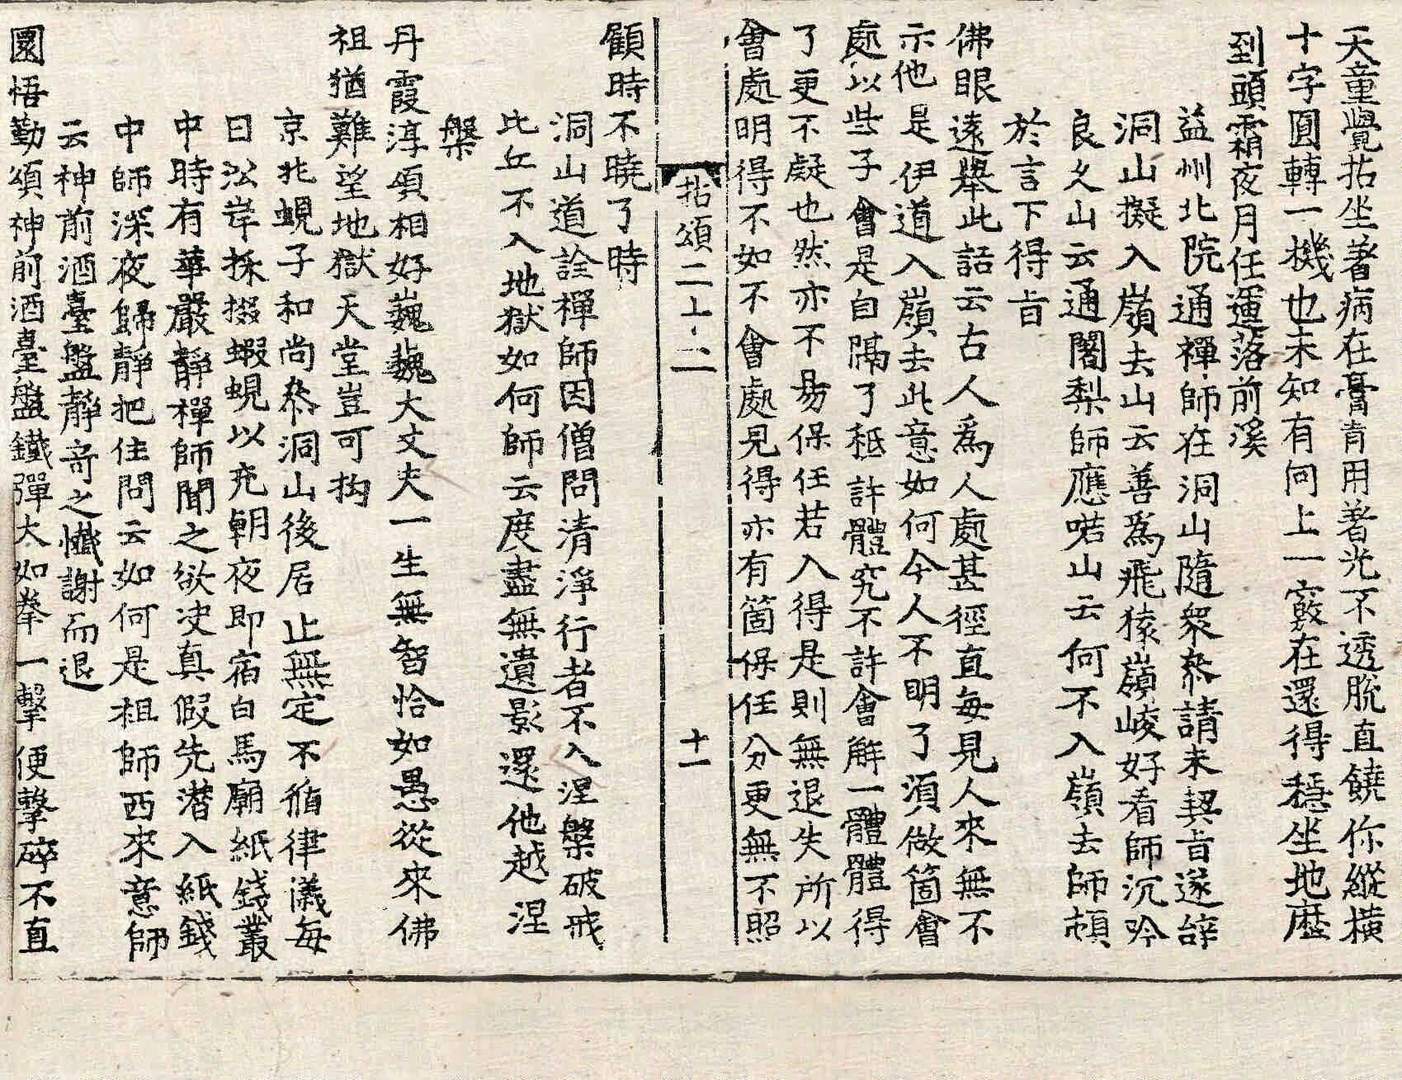 天童覺拈坐著病在膏肓用著光不透脫直饒你縱橫
十字圓轉一機也未知有向上一竅在還得穩坐地麽
到頭霜夜月任運落前溪
益州北院通禪師在洞山隨衆叅請未契旨遂辞
洞山擬入嶺去山云善爲飛猿嶺峻好看師沉吟
良久山云通闍梨師應喏山云何不入嶺去師頓
於言下得旨
佛眼遠舉此話云古人爲人處甚徑直每見人來無不
示他是伊道入嶺去此意如何今人不明了須做箇會
處以些子會是自隔了秪許體究不許會解一體體得
了更不疑也然亦不易保任若入得是則無退失所以
會處明得不如不會處見得亦有箇保任分更無不照
拈頌二十二 十一
顧時不曉了時
洞山道詮禪師因僧問清淨行者不入涅槃破戒
比丘不入地獄如何師云度盡無遺影還他越涅
槃
丹霞淳頌相好巍巍大丈夫一生無智恰如愚從來佛
祖猶難望地獄天堂豈可拘
京兆蜆子和尚叅洞山後居止無定不循律儀每
日沿岸採掇蝦蜆以充朝夜即宿白馬廟紙錢叢
中時有華嚴靜禪師聞之欲决真假先潜入紙錢
中師深夜歸靜把住問云如何是祖師西來意師
云神前酒臺盤靜奇之懺謝而退
圜悟勤頌神前酒臺盤鐵彈大如拳一擊便擊碎不直